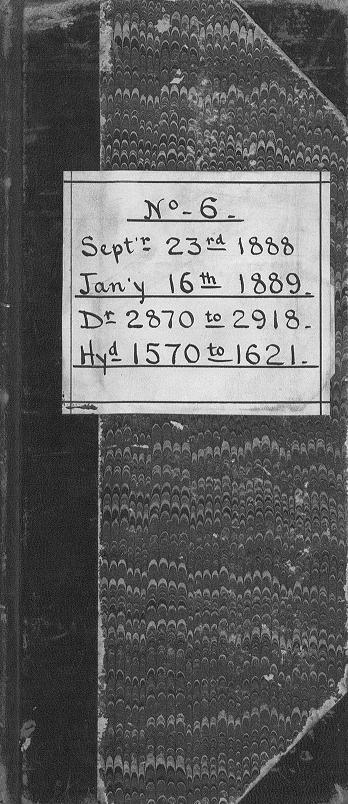 No - 6.
Sept'r 23rd 1888
Jan'y 16th 1889.
Dr 2870 to 2918.
Hyd 1570 to 1621.